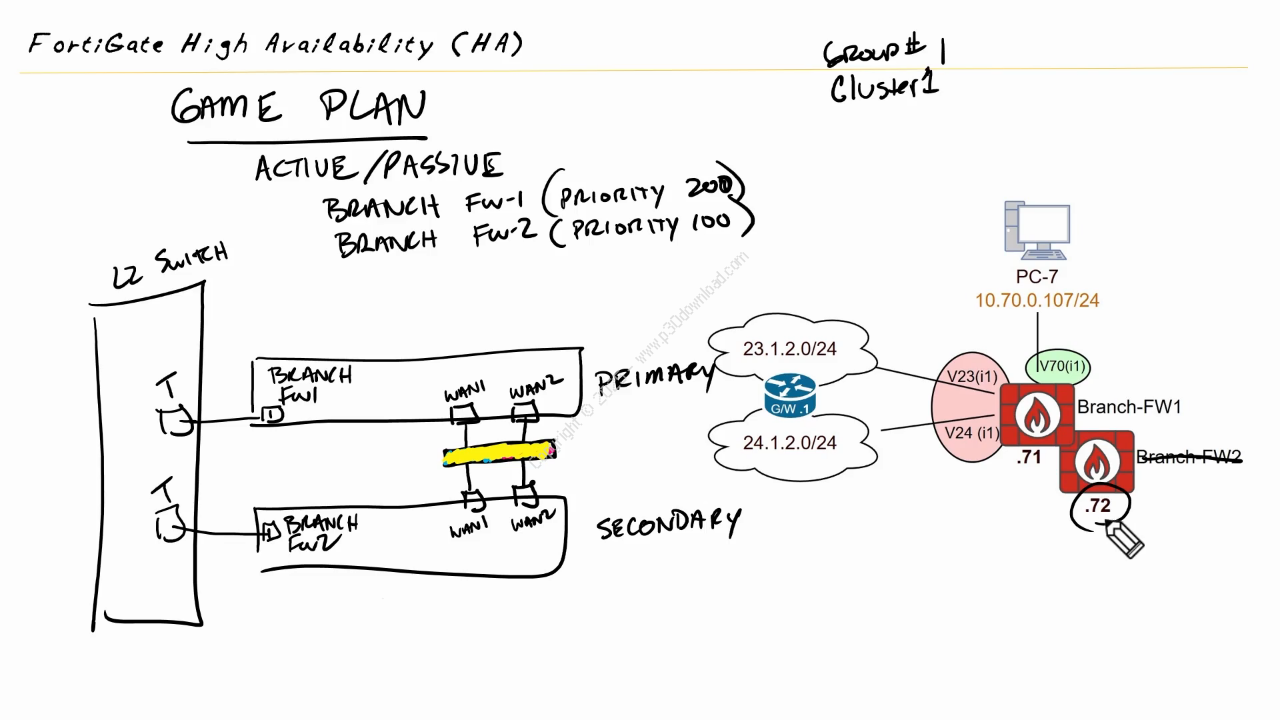 FortiGate High Availability (HA)
GROUP# 1
Cluster1
GAME PLAN
ACTIVE/PASSIVE
BRANCH FW-1 (PRIORITY 200)
BRANCH FW-2 (PRIORITY 100)
L2 SWITCH
T
BRANCH
FW1
1
WAN1 WAN2
PRIMARY
T
1
BRANCH
FW2
WAN1 WAN2
SECONDARY
PC-7
10.70.0.107/24
23.1.2.0/24
G/W .1
24.1.2.0/24
V23(i1)
V70(i1)
V24 (i1)
Branch-FW1
.71
Branch-FW2
.72
www.p30download.com